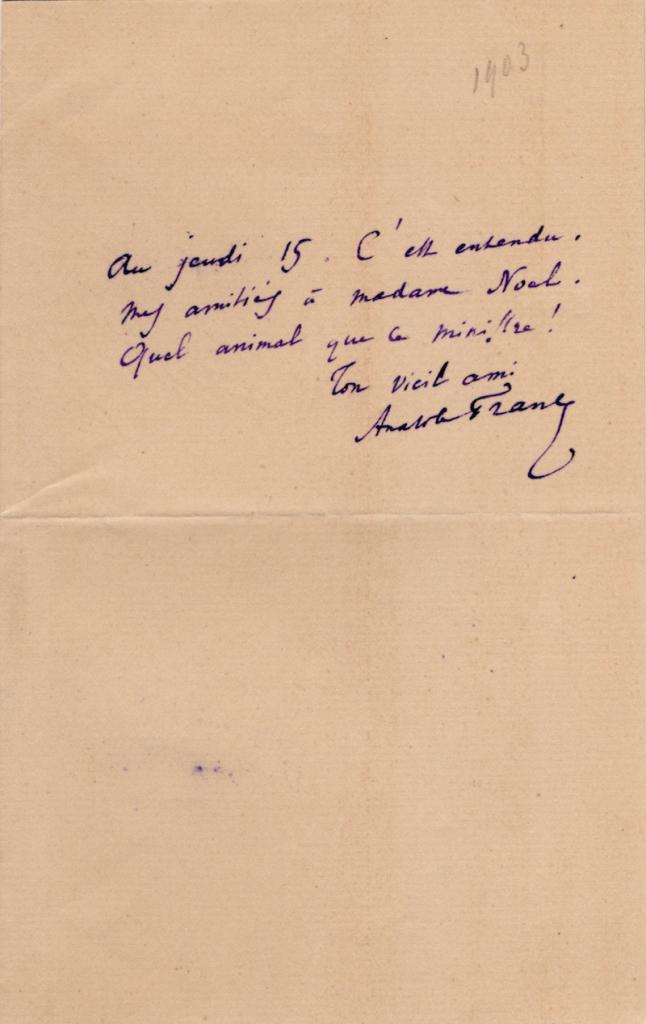 1903
Au jeudi 15. C'est entendu.
Mes amitiés à madame Noel.
Quel animal que ce ministre!
Ton vieil ami
Anatole France